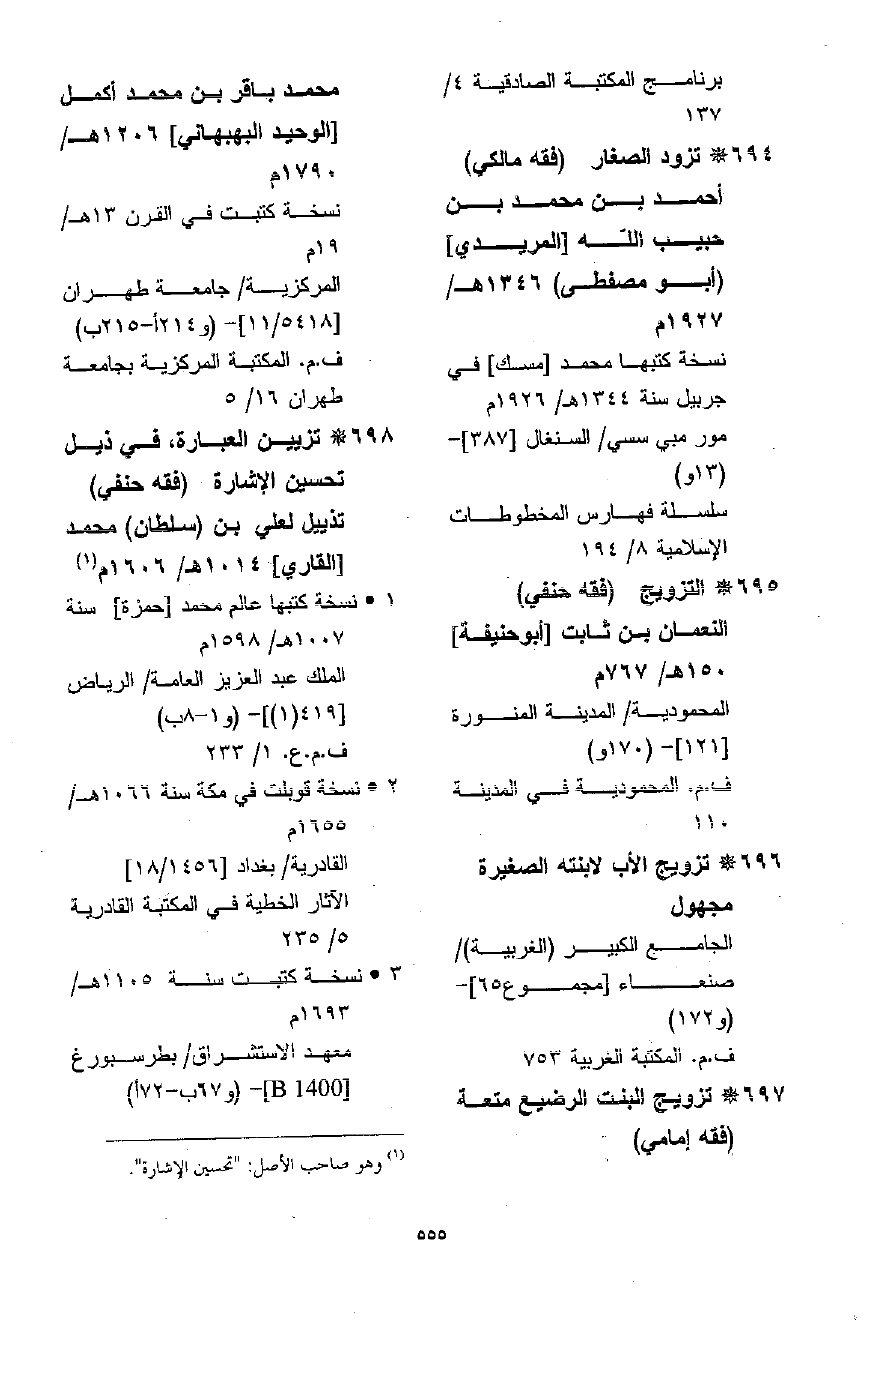 برنامج المكتبة الصادقية ٤/
١٣٧
٦٩٤* تزود الصغار (فقه مالكي)
أحمد بن محمد بن
حبيب الله [المريدي]
(أبو مصفطى) ١٣٤٦هـ/
١٩٢٧م
نسخة كتبها محمد [مسك] في
جربيل سنة ١٣٤٤هـ/ ١٩٢٦م
مور مبي سسي/ السنغال [٣٨٧]-
(١٣و)
سلسلة فهارس المخطوطات
الإسلامية ٨/ ١٩٤
٦٩٥* التزويج (فقه حنفي)
النعمان بن ثابت [أبوحنيفة]
١٥٠هـ/ ٧٦٧م
المحمودية/ المدينة المنورة
[١٢١]- (١٧٠و)
ف.م. المحمودية في المدينة
١١٠
٦٩٦* تزويج الأب لابنته الصغيرة
مجهول
الجامع الكبير (الغربية)/
صنعاء [مجموع٦٥]-
(و١٧٢)
ف.م. المكتبة الغربية ٧٥٣
٦٩٧* تزويج البنت الرضيع متعة
(فقه إمامي)
محمد باقر بن محمد أكمل
[الوحيد البهبهاني] ١٢٠٦هـ/
١٧٩٠م
نسخة كتبت في القرن ١٣هـ/
١٩م
المركزية/ جامعة طهران
[١١/٥٤١٨]- (و٢١٤أ-٢١٥ب)
ف.م. المكتبة المركزية بجامعة
طهران ١٦/ ٥
٦٩٨* تزيين العبارة، في ذيل
تحسين الإشارة (فقه حنفي)
تذييل لعلي بن (سلطان) محمد
[القاري] ١٠١٤هـ/ ١٦٠٦م(١)
١ • نسخة كتبها عالم محمد [حمزة] سنة
١٠٠٧هـ/ ١٥٩٨م
الملك عبد العزيز العامة/ الرياض
[٤١٩(١)]- (و١-٨ب)
ف.م.ع. ١/ ٢٣٣
٢ • نسخة قوبلت في مكة سنة ١٠٦٦هـ/
١٦٥٥م
القادرية/ بغداد [١٨/١٤٥٦]
الآثار الخطية في المكتبة القادرية
٥/ ٢٣٥
٣ • نسخة كتبت سنة ١١٠٥هـ/
١٦٩٣م
معهد الاستشراق/ بطرسبورغ
[B 1400]- (و٦٧ب-٧٢أ)
(١) وهو صاحب الأصل: "تحسين الإشارة".
٥٥٥